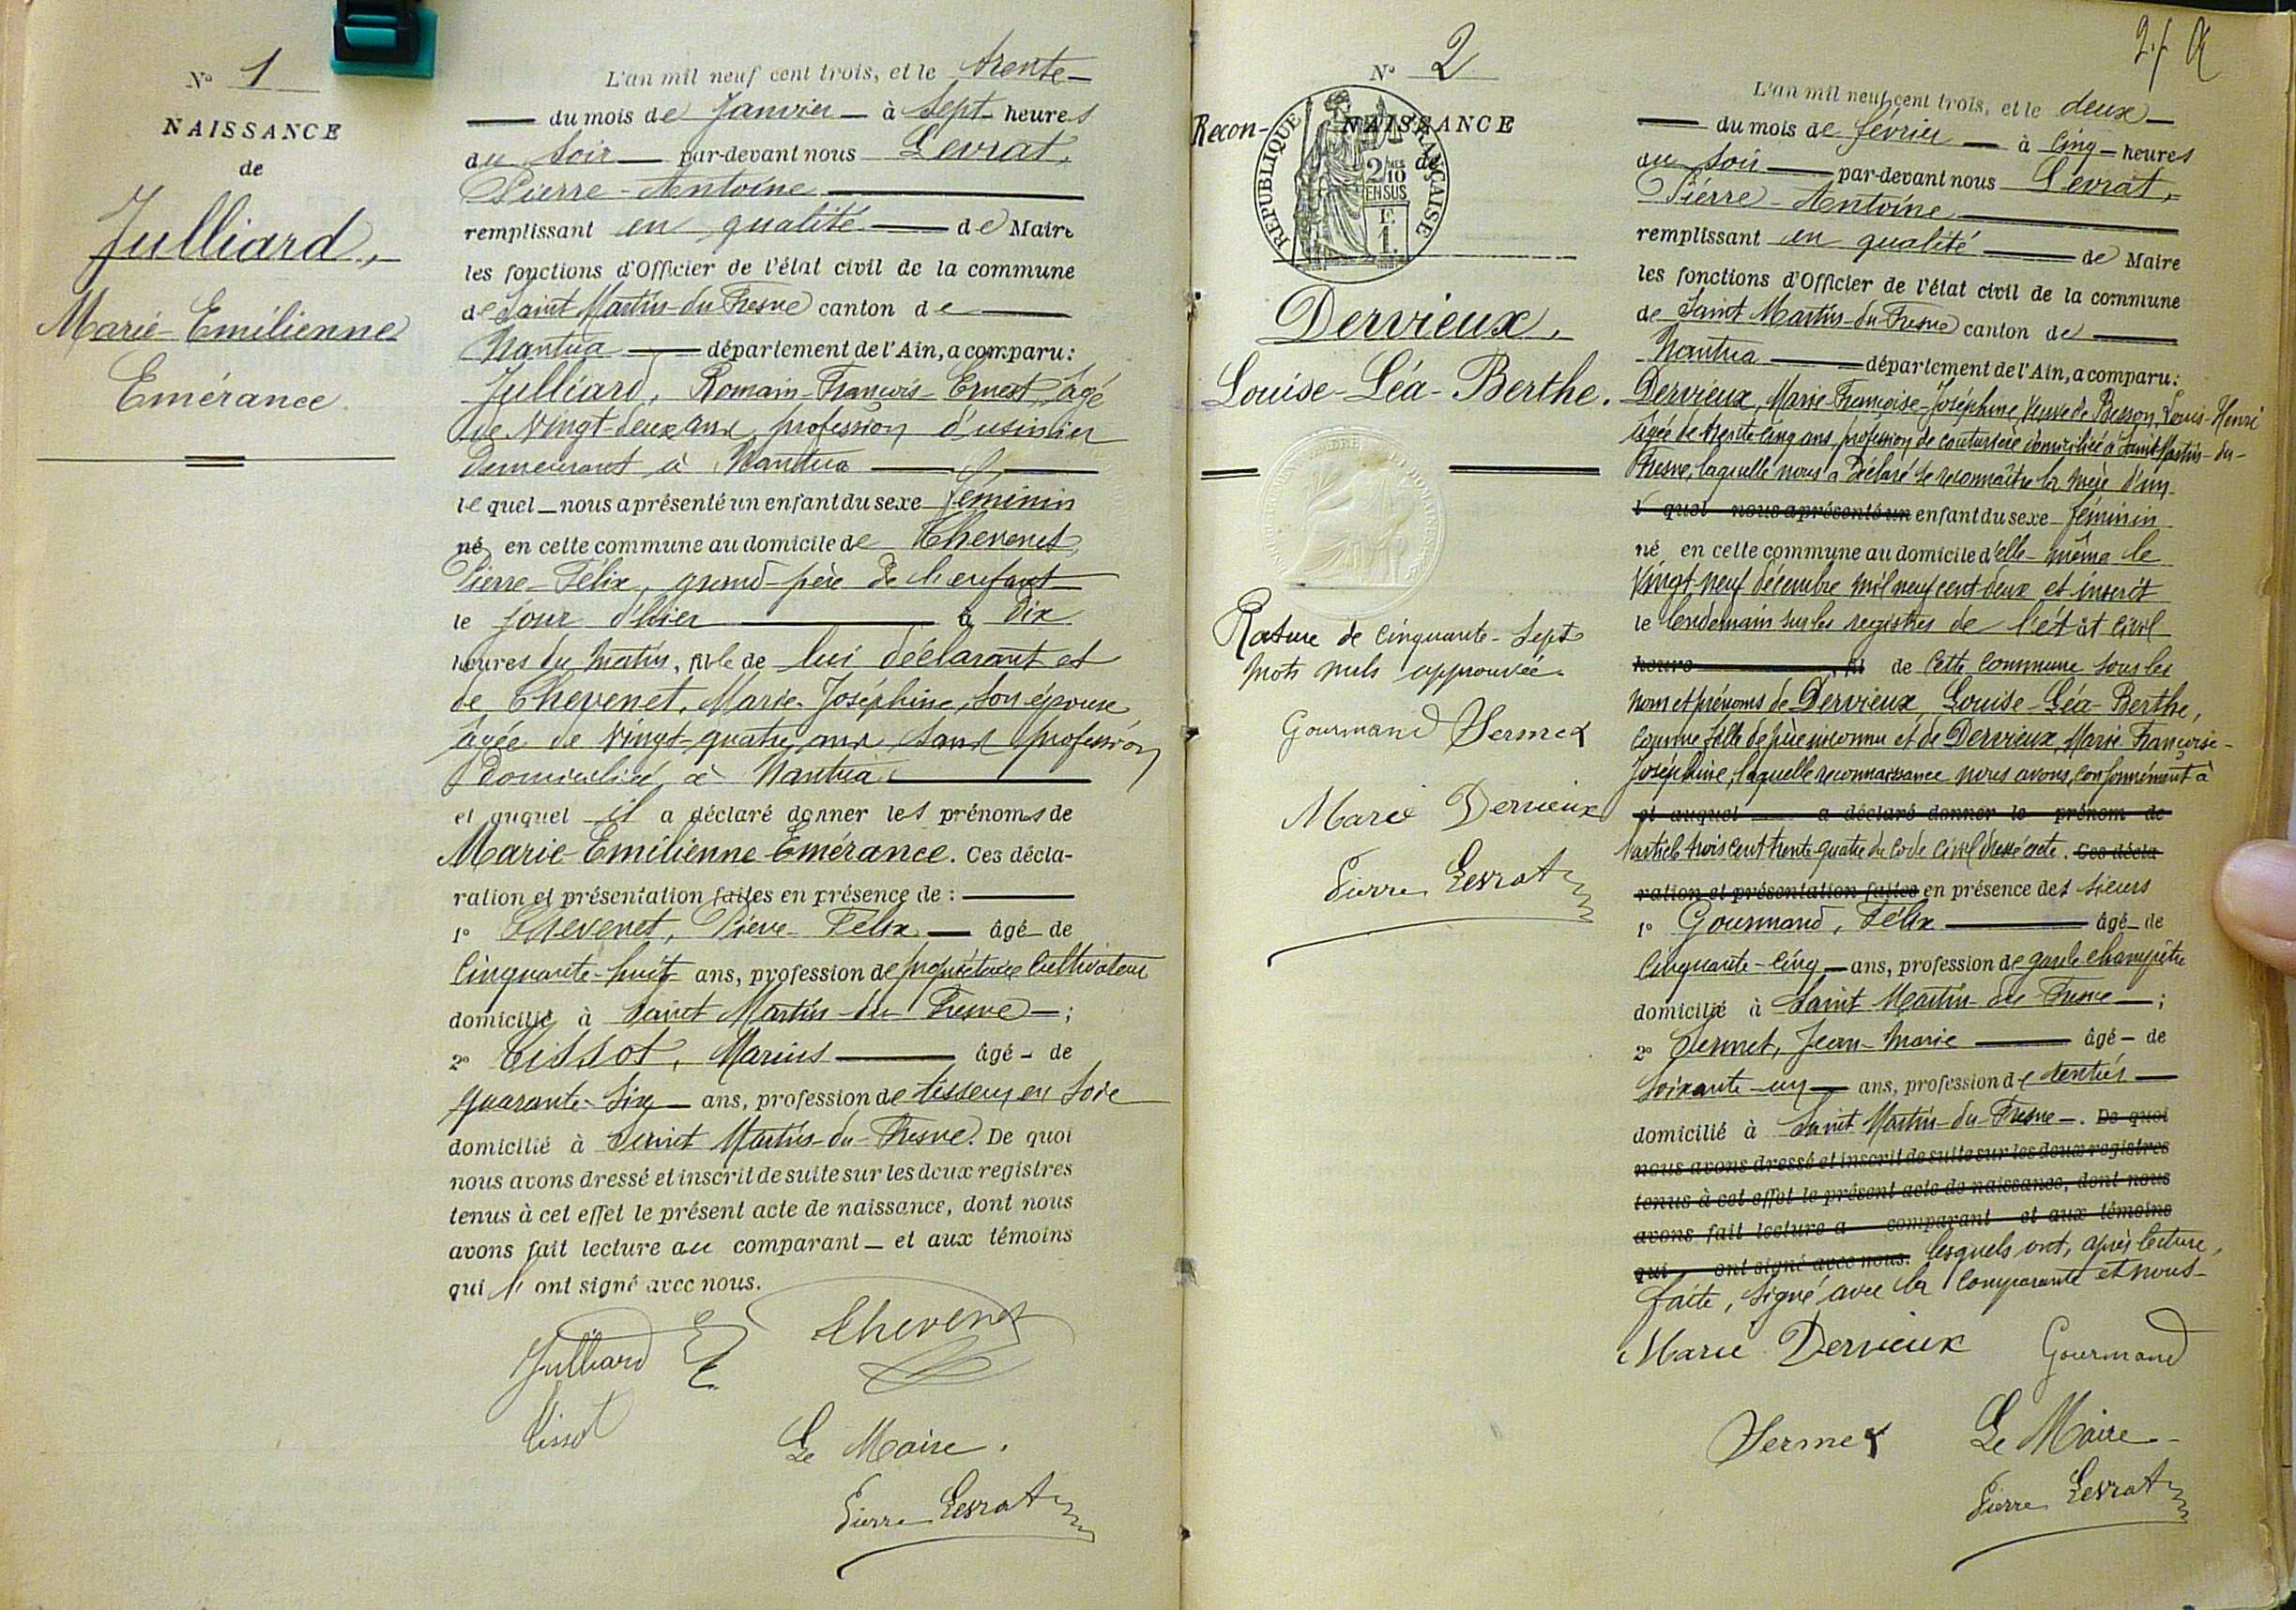 N° 1
NAISSANCE
de
Julliard,
Marie-Emilienne
Emérance.
L'an mil neuf cent trois, et le trente
du mois de Janvier à Sept heures
du soir par-devant nous Levrat,
Pierre-Antoine
remplissant en qualité de Maire
les fonctions d'Officier de l'état civil de la commune
de Saint Martin-du-Fresne canton de
Nantua département de l'Ain, a comparu:
Julliard, Romain-François-Ernest, âgé
de Vingt-deux ans, profession d'usinier
demeurant à Nantua
lequel nous a présenté un enfant du sexe féminin
né en cette commune au domicile de Chevenet,
Pierre-Félix, grand-père de l'enfant
le jour d'hier à dix
heures du matin, fille de lui déclarant et
de Chevenet, Marie-Joséphine, son épouse,
âgée de vingt-quatre ans, sans profession
domiciliée à Nantua
et auquel il a déclaré donner les prénoms de
Marie-Emilienne-Emérance. Ces décla-
ration et présentation faites en présence de :
1° Chevenet, Pierre-Félix âgé de
Cinquante-huit ans, profession de propriétaire cultivateur
domicilié à Saint Martin-du-Fresne ;
2° Tissot, Marius âgé de
quarante-six ans, profession de tisseur en soie
domicilié à Saint Martin-du-Fresne. De quoi
nous avons dressé et inscrit de suite sur les deux registres
tenus à cet effet le présent acte de naissance, dont nous
avons fait lecture au comparant et aux témoins
qui ont signé avec nous.
Julliard E Chevenet
Tissot
Le Maire.
Pierre Levrat
N° 2
Recon-NAISSANCE
de
REPUBLIQUE FRANÇAISE
2/10
EN SUS
1 F.
Dervieux,
Louise-Léa-Berthe.
Rature de cinquante-sept
mots nuls approuvée.
Gourmand Sermet
Marie Dervieux
Pierre Levrat
L'an mil neuf cent trois, et le deux
du mois de février à Cinq heures
du soir par-devant nous Levrat,
Pierre-Antoine
remplissant en qualité de Maire
les fonctions d'Officier de l'état civil de la commune
de Saint Martin-du-Fresne canton de
Nantua département de l'Ain, a comparu:
Dervieux, Marie-Françoise-Joséphine, Veuve de Besson, Louis-Henri
âgée de trente-cinq ans, profession de couturière domiciliée à Saint Martin-du-
Fresne, laquelle nous a déclaré se reconnaître la mère d'un
l quel nous a présenté un enfant du sexe féminin
né en cette commune au domicile d'elle-même le
Vingt-neuf décembre mil neuf cent deux et inscrit
le lendemain sur les registres de l'état civil
heure , fil de cette commune sous les
nom et prénoms de Dervieux, Louise-Léa-Berthe,
comme fille de père inconnu et de Dervieux, Marie Françoise-
Joséphine, laquelle reconnaissance nous avons, conformément à
et auquel a déclaré donner le prénom de
l'article trois cent trente-quatre du Code Civil dressé acte. Ces décla
ration et présentation faites en présence des sieurs
1° Gourmand, Félix âgé de
Cinquante-cinq ans, profession de garde champêtre
domicilié à Saint Martin-du-Fresne ;
2° Sermet, Jean-Marie âgé de
soixante-un ans, profession de rentier
domicilié à Saint Martin-du-Fresne. De quoi
nous avons dressé et inscrit de suite sur les deux registres
tenus à cet effet le présent acte de naissance, dont nous
avons fait lecture a comparant et aux témoins
qui ont signé avec nous. lesquels ont, après lecture,
faite, signé avec la comparante et nous
Marie Dervieux Gourmand
Sermet Le Maire
Pierre Levrat